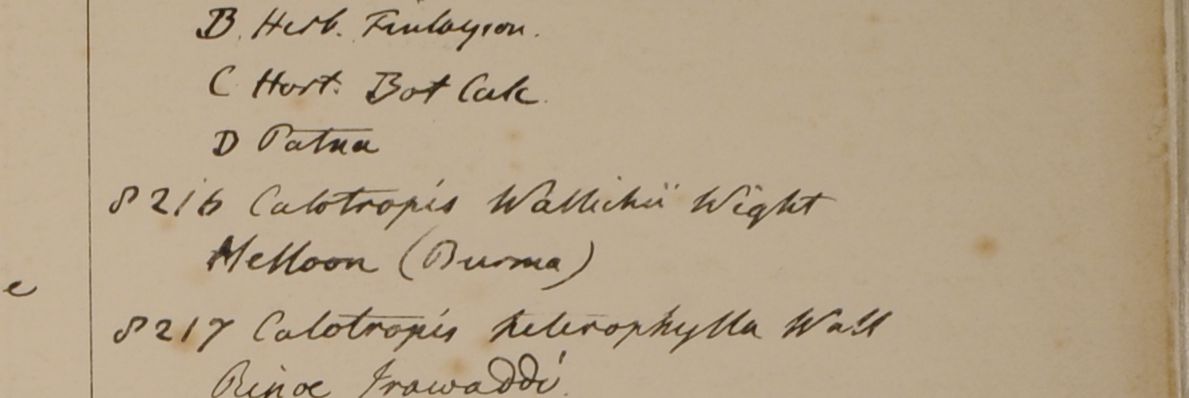 B. Herb. Finlayson.
C Hort. Bot Calc.
D Patna
8216 Calotropis Wallichii Wight
Melloon (Burma)
e
8217 Calotropis heterophylla Wall
Irawaddi